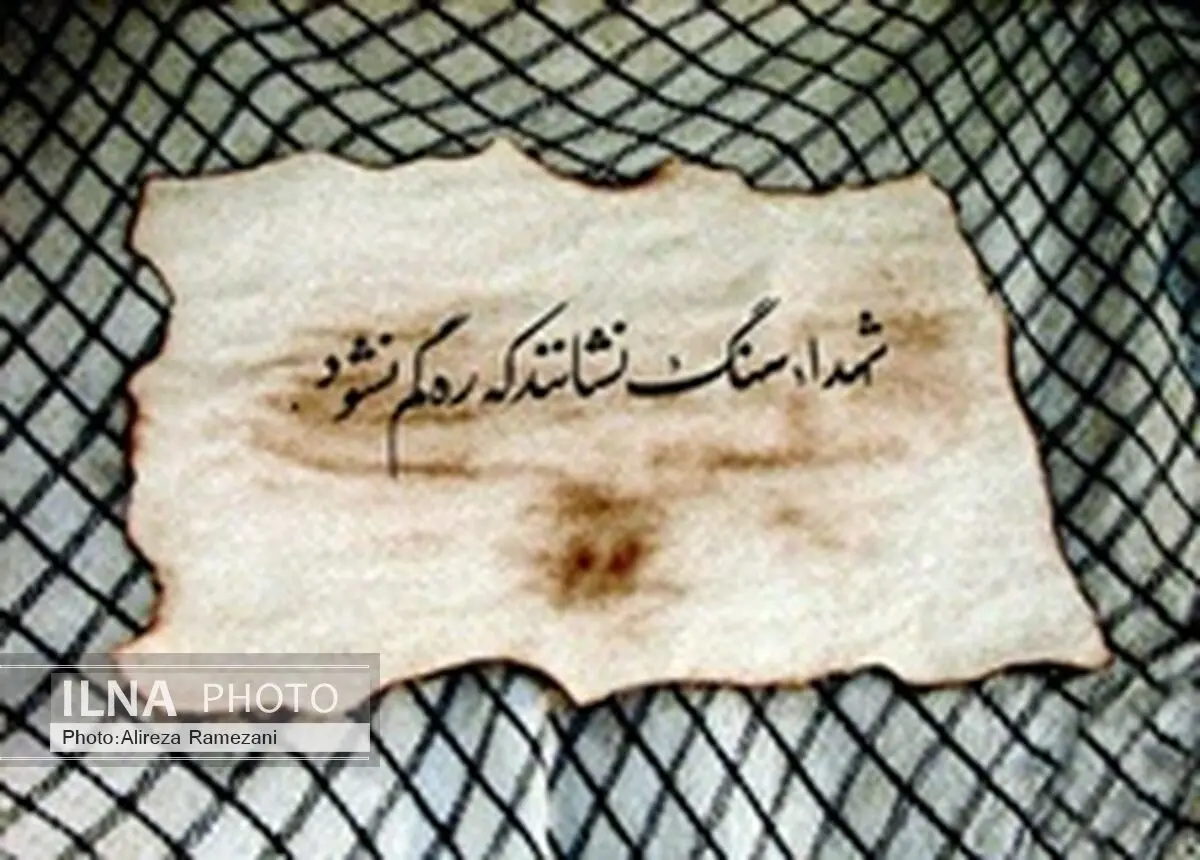 شهدا، سنگ نشانند که ره گم نشود
ILNA PHOTO
Photo:Alireza Ramezani